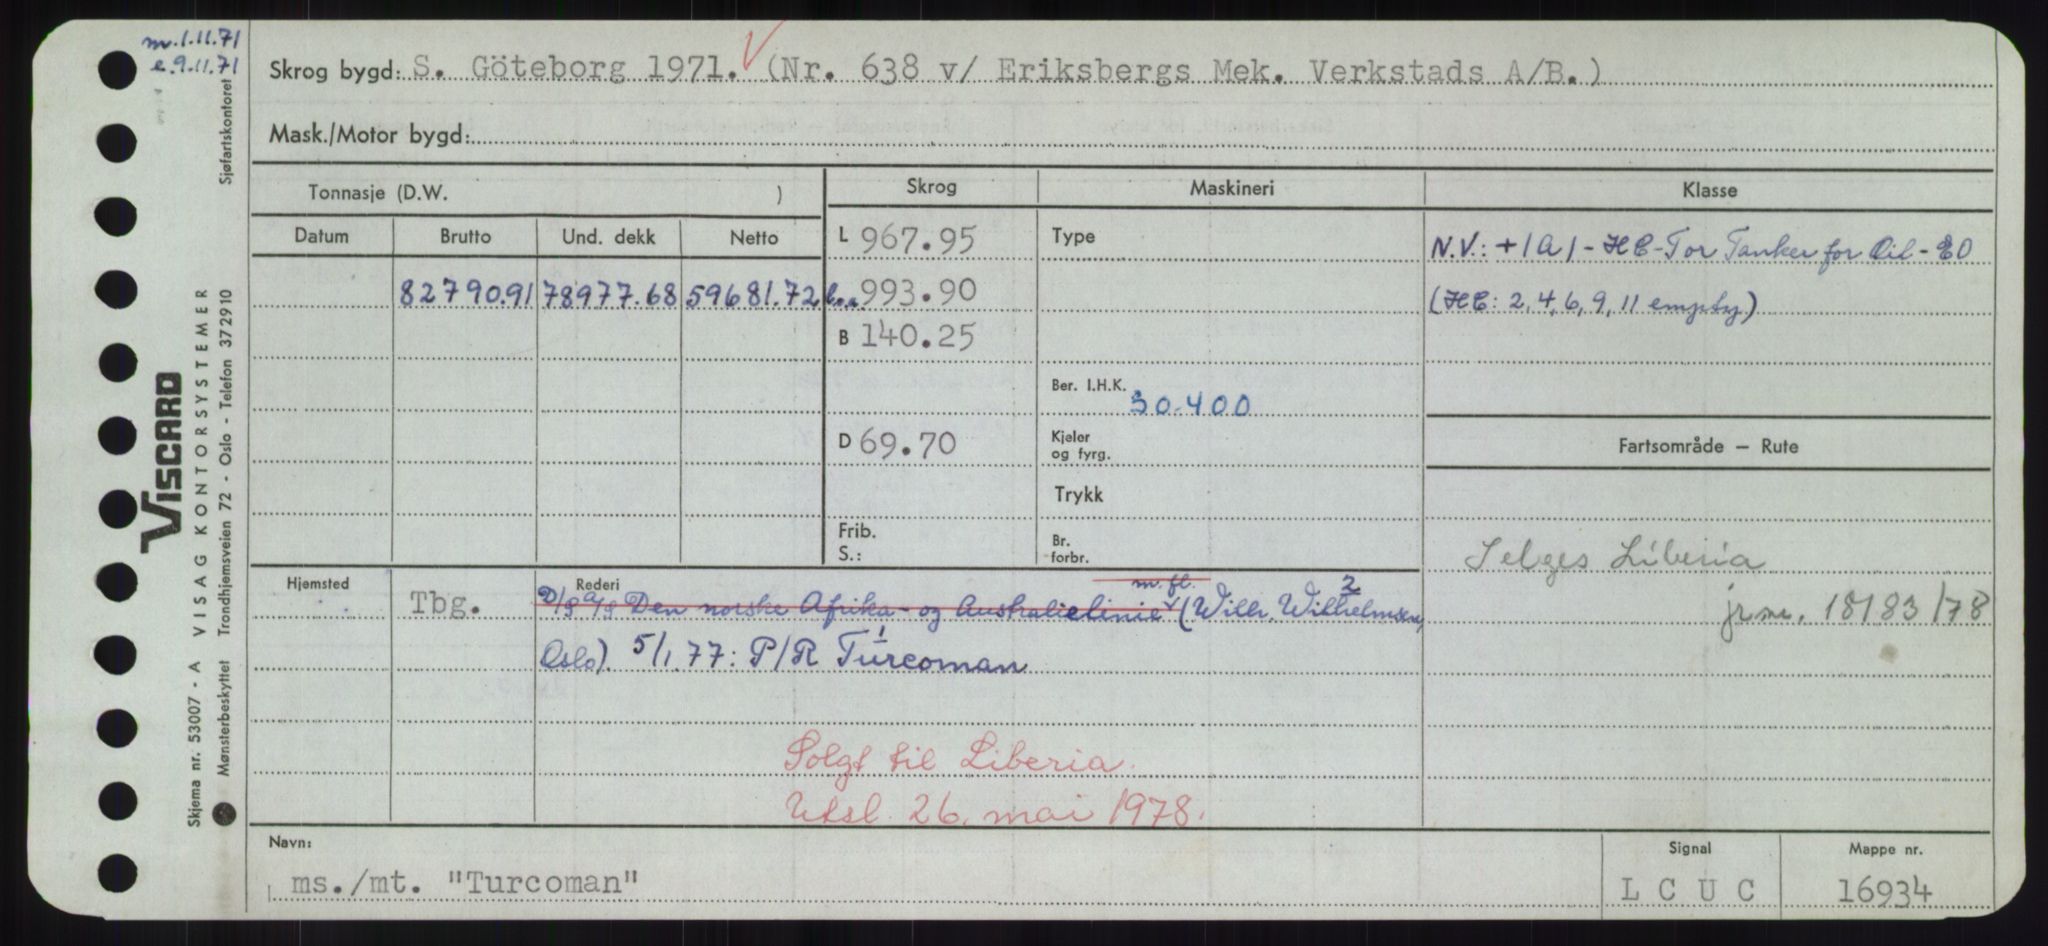 m. 1.11.71
e. 9.11.71
Skrog bygd: S. Göteborg 1971. (Nr. 638 v/ Eriksbergs Mek. Verkstads A/B.)
Mask./Motor bygd:
Tonnasje (D.W. )
Skrog
Maskineri
Klasse
Datum Brutto Und. dekk Netto
L 967.95
Type
N.V.: +1A1 - HC - For Tanker for Oil - EO
82790.91 78977.68 59681.72 l.o.a. 993.90
(HC: 2, 4, 6, 9, 11 empty)
B 140.25
Ber. I.H.K. 30.400
D 69.70
Kjeler og fyrg.
Fartsområde — Rute
Trykk
Frib.
S.:
Br. forbr.
Selges Liberia
jr.nr. 18183/78
Hjemsted
Tbg.
Rederi
m. fl. 2
D/S A/S Den norske Afrika- og Australielinie (Wilh. Wilhelmsen,
Oslo). 5/1.77: P/R Turcoman 1
Solgt til Liberia.
Utsl. 26. mai 1978.
Navn:
ms./mt. "Turcoman"
Signal
L C U C
Mappe nr.
16934
VISCARD
Skjema nr. 53007 - A VISAG KONTORSYSTEMER
Mønsterbeskyttet Trondhjemsveien 72 - Oslo - Telefon 372910
Sjøfartskontoret